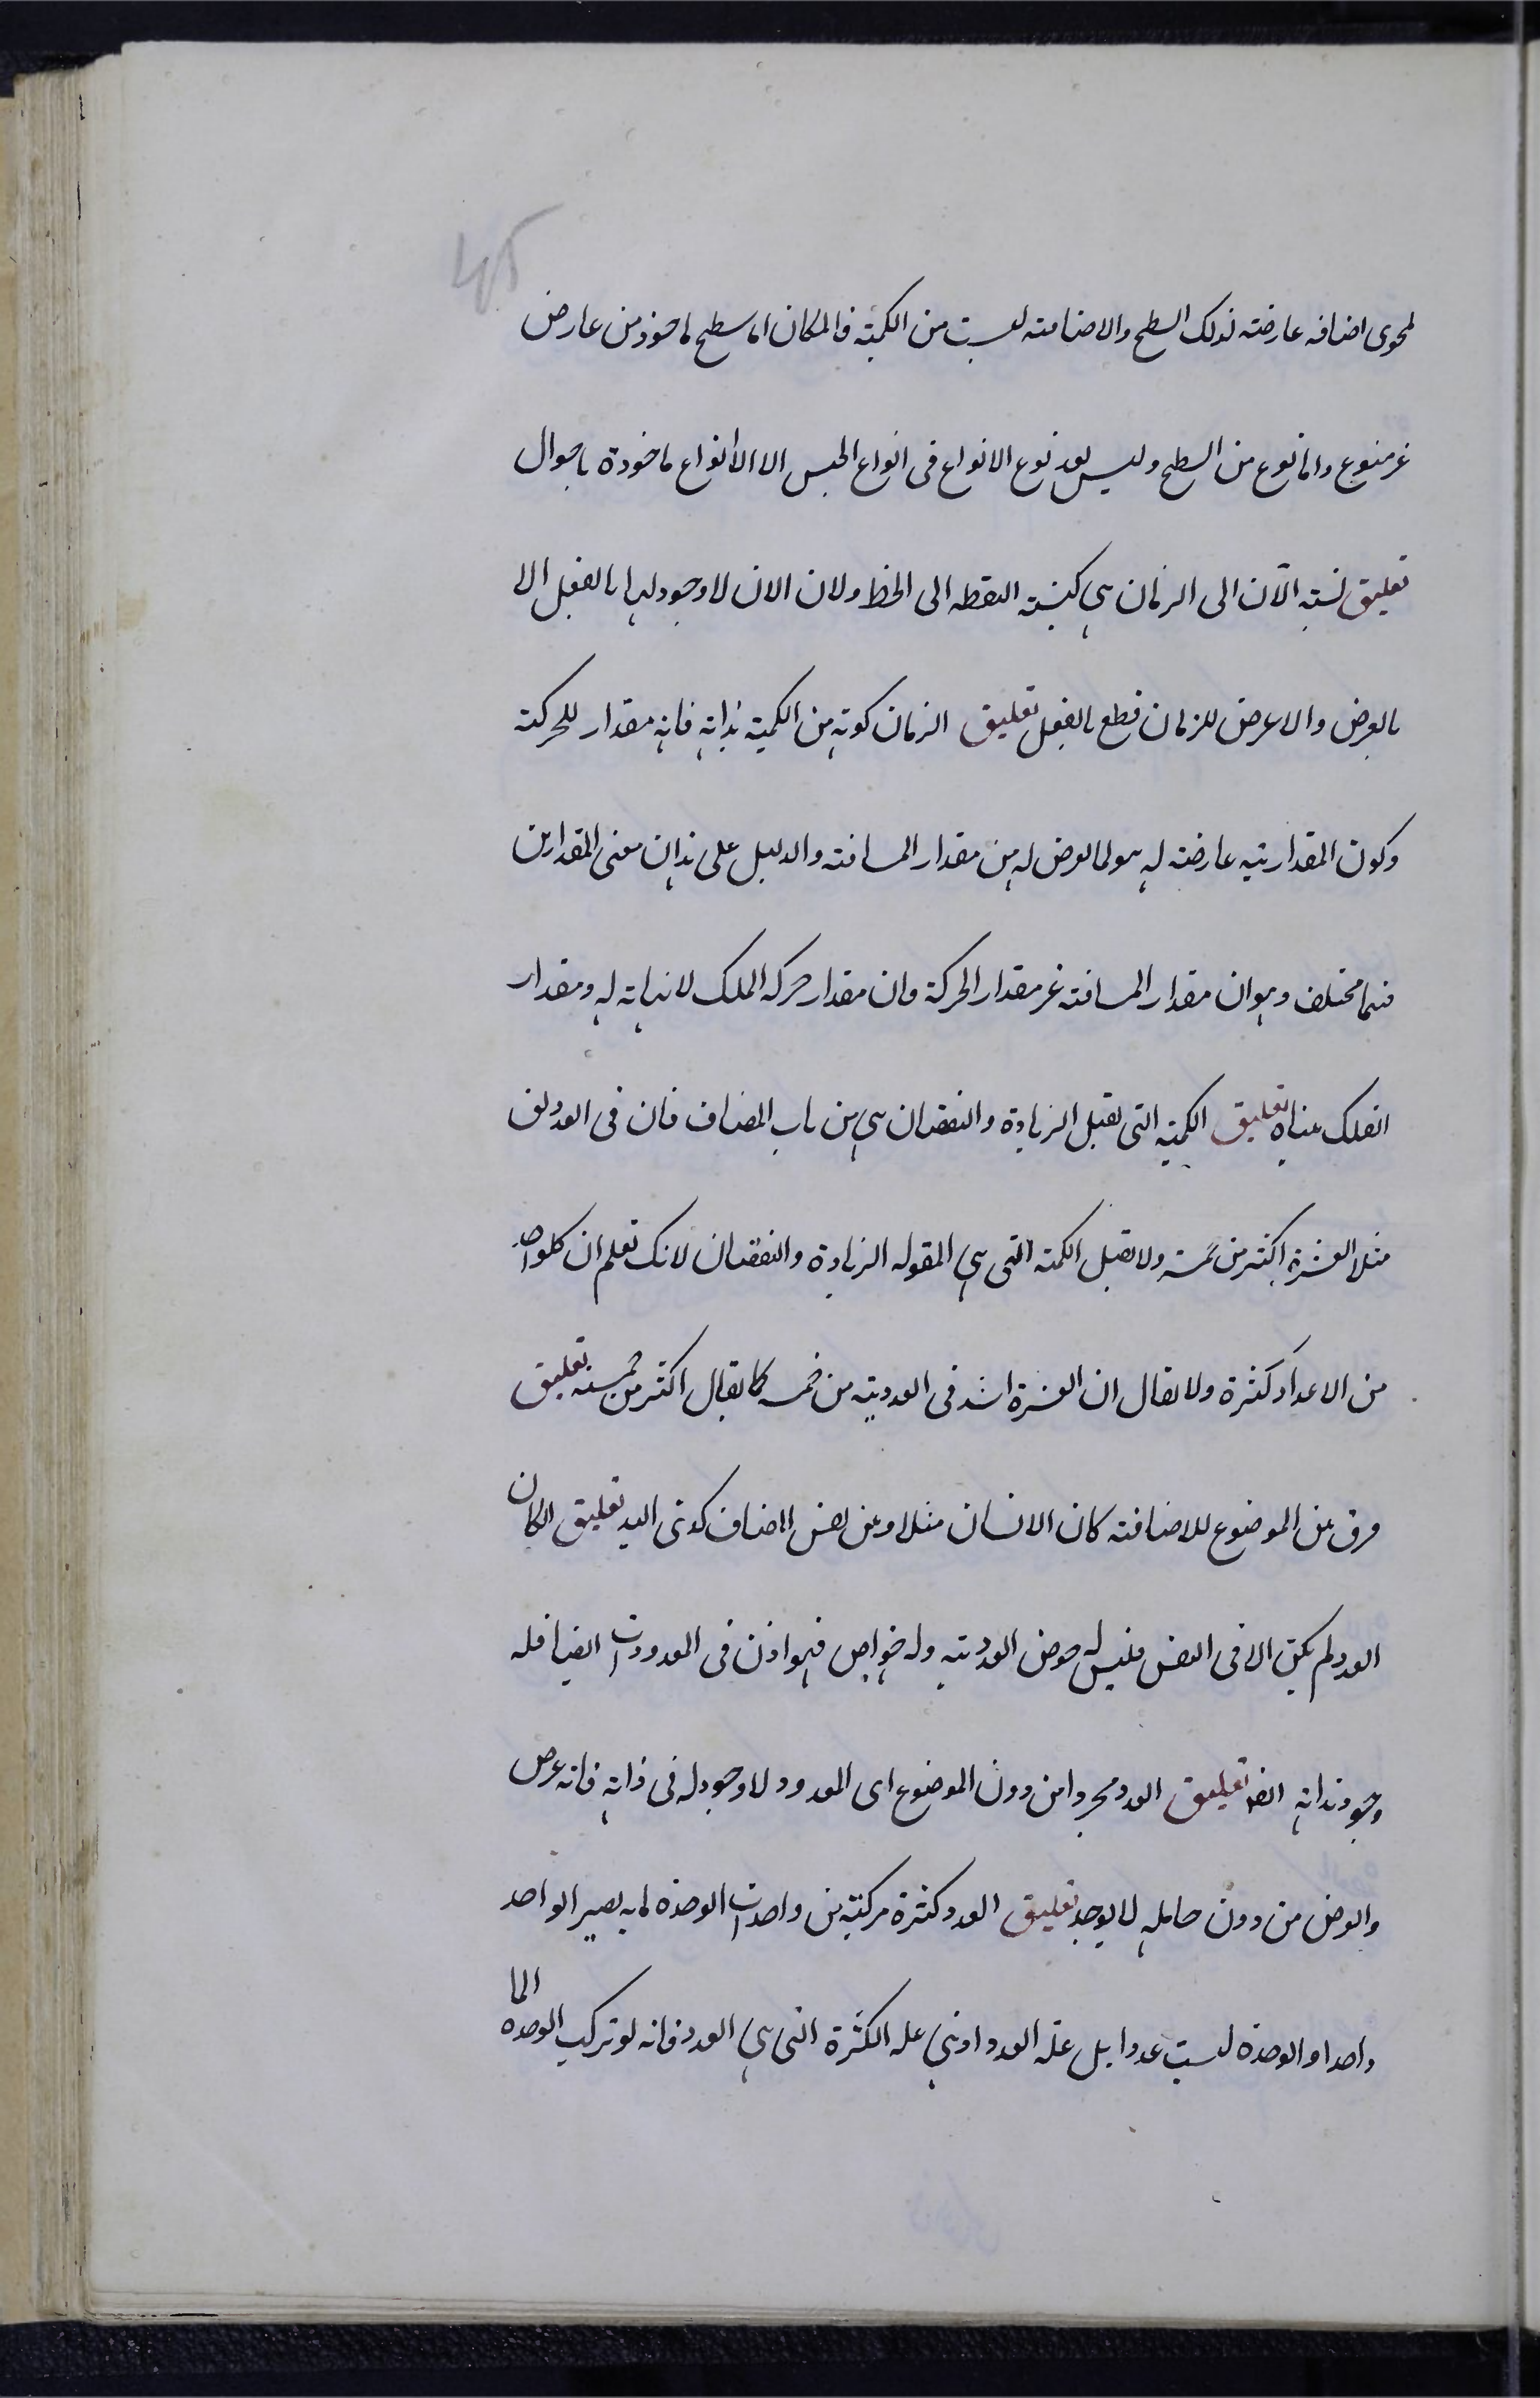 45
لمحوى اضافه عارضته لذلك السطح والاضافته ليست من الكمية فالمكان اما سطح ماخوذ من عارض
غر منوع واما نوع من السطح وليس يعد نوع الانواع فى انواع الجنس الا الانواع ماخوذة باحوال
تعليق نسبة الآن الى الزمان هي كنسبة النقطه الى الخط ولان الان لا وجود لها بالفعل الا
بالعرض والا عرض للزمان قطع بالفعل تعليق الزمان كونه من الكمية بذاته فانه مقدار للحركته
وكون المقداريته عارضته له هو لما يعرض له من مقدار المسافته والدليل على هذا ان معنى المقدارين
فيهما مختلف وهو ان مقدار المسافته غر مقدار الحركة وان مقدار حركه الفلك لا نهاية له ومقدار
الفلك متناه تعليق الكمية التى تقبل الزيادة والنقصان هي من باب المضاف فان فى العدد يق
مثلا العشرة اكثر من خمسة ولا تقبل الكمته التى هي المقوله الزيادة والنقصان لانك تعلم ان كلواحد
من الاعداد كثرة ولا يقال ان العشرة اشد فى العددية من خمسه كما يقال اكثر من خمسته تعليق
فرق بين الموضوع للاضافته كان الانسان مثلا وبين نفس المضاف كونى اليد تعليق ان كان
العدد لم يكن الا فى النفس فليس له خوض العددية وله خواص فهو اذن فى المعدودات ايضا فله
وجود بذاته ايضا تعليق العدد مجردا من دون الموضوع اى المعدود لا وجود له فى ذاته فانه عرض
والعرض من دون حامله لا يوجد تعليق العدد كثرة مركبة من واحدات الوحدة ما به يصير الواحد
واحدا والوحدة ليست عددا بل علة العدد اذ هي عله الكثرة التى هي العدد فانه لو تركيب الوحدة الما